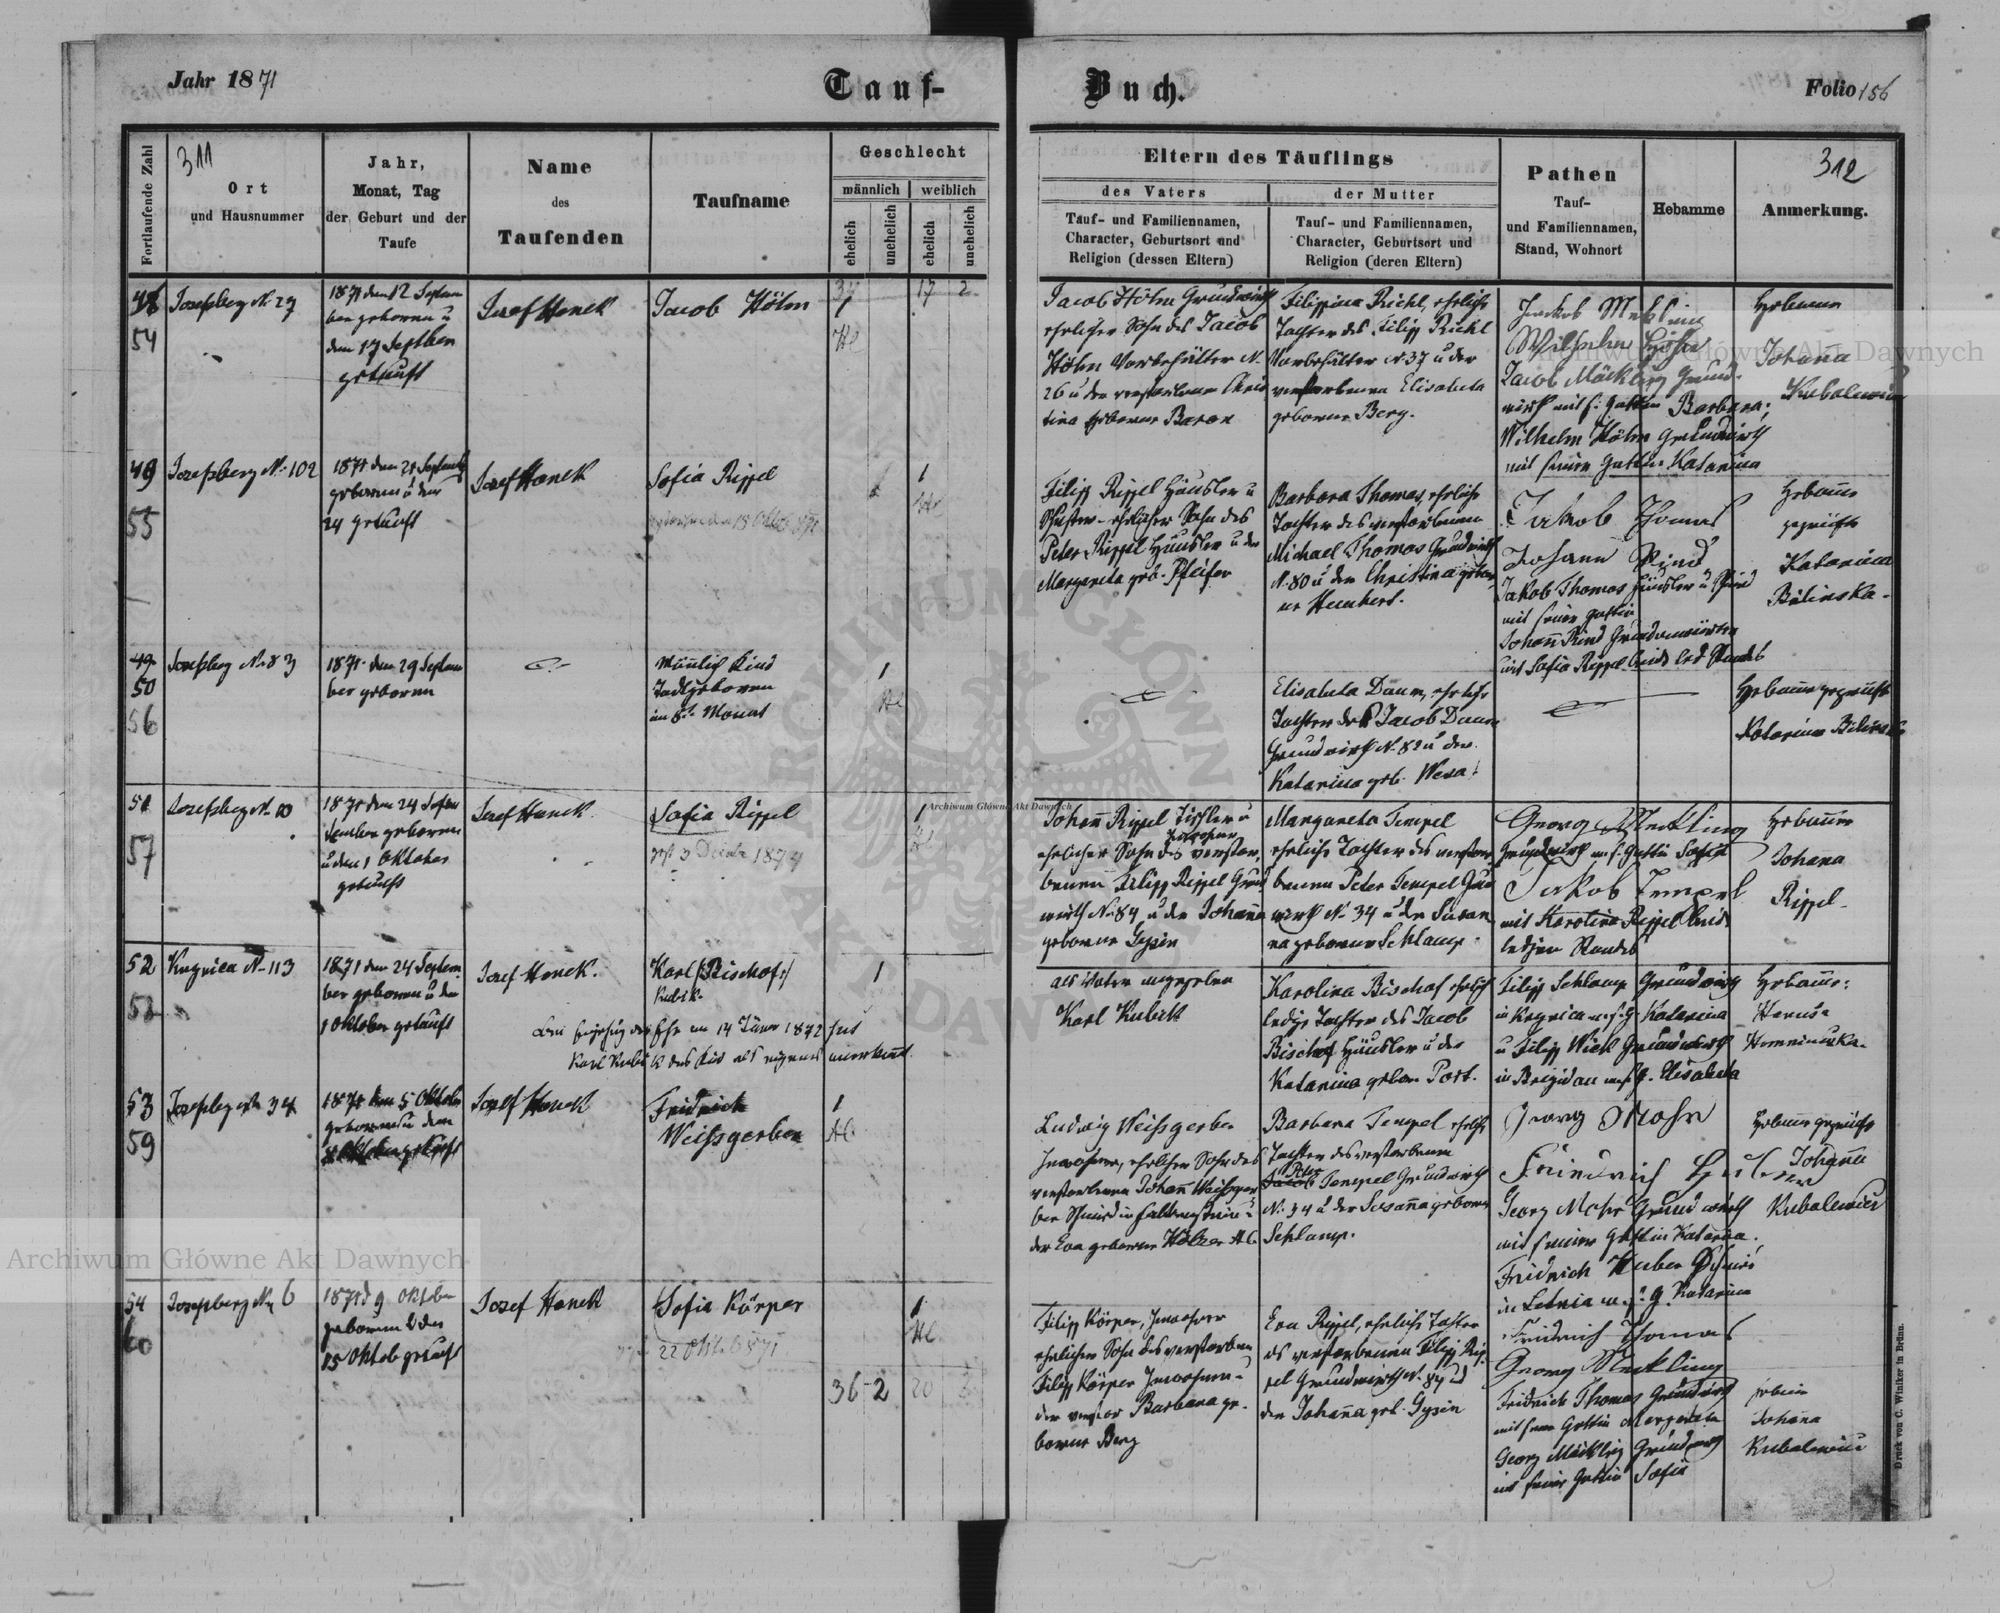 Jahr 1871
Tauf-
Buch.
Folio 156
311
312
Fortlaufende Zahl
Ort
und Hausnummer
Jahr,
Monat, Tag
der Geburt und der
Taufe
Name
des
Taufenden
Taufname
Geschlecht
männlich
weiblich
ehelich
unehelich
ehelich
unehelich
Eltern des Täuflings
des Vaters
Tauf- und Familiennamen,
Character, Geburtsort und
Religion (dessen Eltern)
der Mutter
Tauf- und Familiennamen,
Character, Geburtsort und
Religion (deren Eltern)
Pathen
Tauf-
und Familiennamen,
Stand, Wohnort
Hebamme
Anmerkung.
54
Josefsberg N. 27
1871 den 12 Septem
ber geboren u
den 17 Septber
getauft
Josef Hanek
Jacob Höhn
1
17 2
Jacob Höhn Grundwirth
ehelicher Sohn des Jacob
Höhn Vorbehälter N.
26 u der verstorbenen Chris
tina geborne Baron
Filippina Richl, eheliche
Tochter des Filipp Richl
Vorbehälter N 37 u der
verstorbenen Elisabeta
geborne Berg.
Wilhelm Höhn
Jacob Möckling Grund-
wirth mit s: Gattin Barbara;
Wilhelm Höhn Grundwirth
mit seiner Gattin Katarina
Hebamme
Johana
Kubalewicz
49
55
Josefsberg N. 102
1871 den 21 Septemb
geboren u den
24 getauft
Josef Hanek
Sofia Rippel
1
Filipp Rippel Häusler u
Schuster - ehelicher Sohn des
Peter Rippel Häusler u der
Margareta geb. Pfeifer
Barbara Thomas, eheliche
Tochter des verstorbenen
Michael Thomas Grundwirth
N. 80 u der Christina gebor
ne Humbert.
Jakob Thomas
Johann Rind
Jakob Thomas Häusler
mit seiner Gattin
Johann Rind
mit Sofia Rippel beide led Standes
Hebamme
geprüfte
Katarina
Bilinska.
50
56
Josefsberg N. 83
1871 den 29 Septem
ber geboren
Mänlich Kind
Todtgeboren
im 8t Monat
1
Elisabeta Daum, eheliche
Tochter des Jacob Daum
Grundwirth N. 82 u der
Katarina geb. Wexa.
Hebamme geprüfte
Katarina Bilinska
51
57
Josefsberg N. 10
1871 den 24 Sep
tember geboren
u den 1 Oktober
getauft
Josef Hanek.
Sofia Rippel
1
Johann Rippel Tischler u
Inwohner
ehelicher Sohn des verstor,
benen Filipp Rippel Grund
wirth N. 84 u der Johanna
geborene Gysin
Margareta Tempel
eheliche Tochter des verstor
benen Peter Tempel Grund
wirth N. 34 u der Susan
na geborne Schlamp.
Georg Meckling
Grundwirth m s. Gattin Sofia
Jakob Tempel
mit Karolina Rippel beide
ledigen Standes
Hebamme
Johana
Rippel.
52
58
Krynica N. 113
1871 den 24 Septem
ber geboren u den
1 Oktober getauft
Josef Hanek.
Karl /:Bischof:/
Kubik.
1
Bei Eingehung der Ehe am 14 Jäner 1872 hat
Karl Kubik das Kind als eigenes anerkannt.
als Vater angegeben
Karl Kubik
Karolina Bischof eheliche
ledige Tochter des Jacob
Bischof Häusler u der
Katarina gebor. Port.
Filipp Schlamp Grundwirth
in Krynica m s: g Katarina
u Filipp Wick Grundwirth
in Brigidau m s g. Elisabeta
Hebamme:
53
59
Josefsberg N. 34
1871 den 5 Oktober
geboren u den
8 Oktober getauft
Josef Hanek
Fridrich
Weissgerber
1
Ludwig Weissgerber
Inwohner, ehelicher Sohn des
verstorbenen Johann Weissger
ber Schmied in Falkenstein u
der Eva geborne Hölzer
Barbara Tempel eheliche
Tochter des verstorbenen
Peter
Tempel Grundwirth
N. 34 u der Susanna geborne
Schlamp.
Georg Mohr
Friedrich Huber
Georg Mohr Grundwirth
mit seiner Gattin Katarina.
Fridrich Huber Schmid
in Letnia m. s: g. Katarina
Hebamme geprüfte
Johanna
Kubalewicz
54
60
Josefsberg N. 6
1871 d 9 Oktober
geboren u den
15 Oktob getauft
Josef Hanek
Sofia Körper
22 Oktob 871
1
36 2 20
Filipp Körper, Inwohner
ehelicher Sohn des verstorben
Filipp Körper Inwohner
der verstor Barbara ge-
borne Berg
Eva Rippel, eheliche Tochter
des verstorbenen Filipp Rip-
pel Grundwirth N. 84 u
der Johanna geb. Gysin
Fridrich Thomas
Georg Meckling
Fridrich Thomas Grundwirth
mit seiner Gattin Margareta
Georg Möckling Grundwirth
mit seiner Gattin Sofia
Johanna
Kubalewicz
Druck von C. Winiker in Brünn.
Archiwum Główne Akt Dawnych
Archiwum Główne Akt Dawnych
Archiwum Główne Akt Dawnych
ARCHIWUM GŁÓWNE AKT DAWNYCH